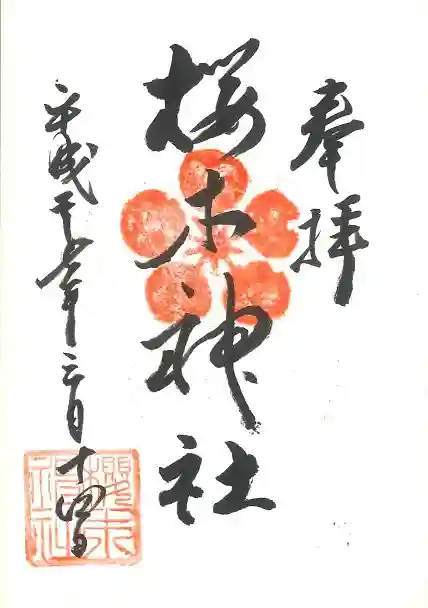 奉拝
桜木神社
平成二十年三月十四日
櫻木神社